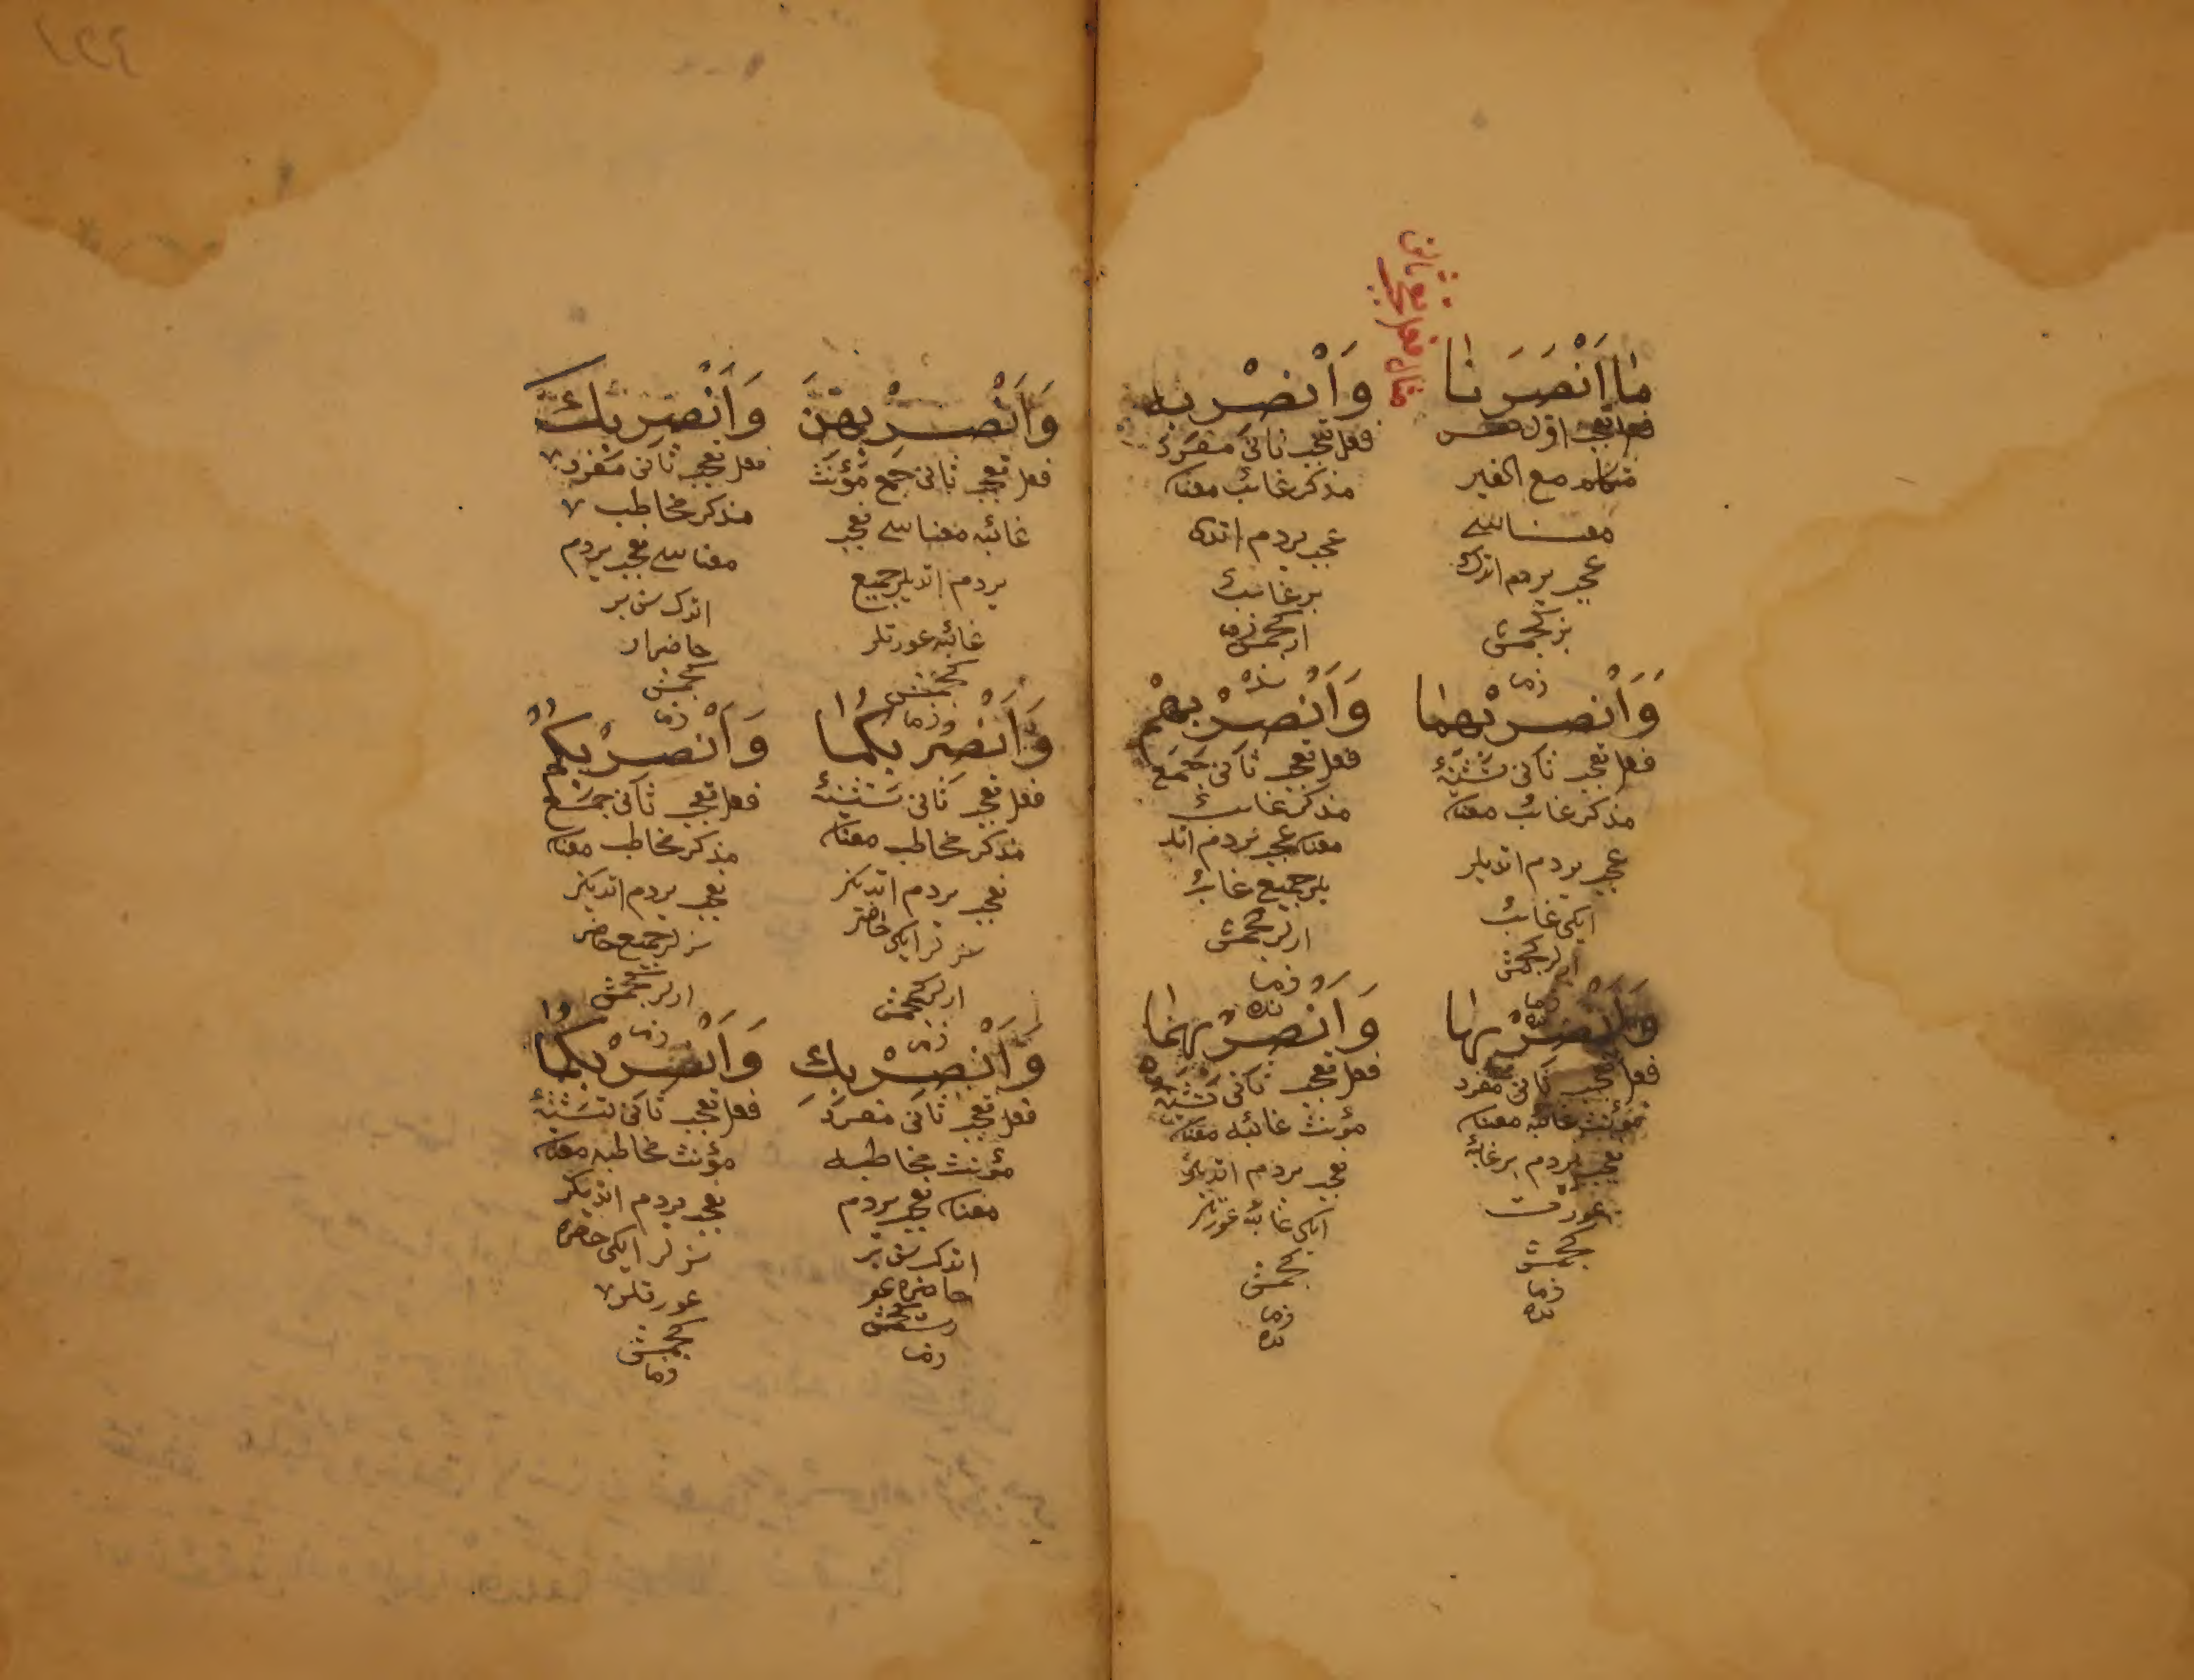 مثال فعل تعجب ثانی
مَا اَنْصَرَنَا
فعل تعجب اول نفس
متكلم مع الغير
معناسی
عجب یردم اتدك
بز كچمش
زما
وَاَنْصِرْ بِهِ
فعل تعجب ثانی مفرد
مذكر غائب معناه
عجب یردم اتدی
بر غائب
ار كچمش زما
نده
وَاَنْصِرْ بِهِمَا
فعل تعجب ثانی تثنیۀ
مذكر غائب معناه
عجب یردم اتدیلر
ایكی غائب
ارلر كچمش
زما
نده
وَاَنْصِرْ بِهِمْ
فعل تعجب ثانی جمع
مذكر غائب
معناه عجب یردم اتد
یلر جمیع غائب
ارلر كچمش
زما
نده
وَاَنْصِرْ بِهَا
فعل تعجب ثانی مفرد
مؤنث غائبه معناه
تعجب یردم بر غائبه
عورت
كچمش
زما
نده
وَاَنْصِرْ بِهِمَا
فعل تعجب ثانی تثنیۀ
مؤنث غائبه معناه
تعجب یردم اتدیلر
ایكی غائبه عورتلر
كچمش
زما
نده
وَاَنْصِرْ بِهِنَّ
فعل تعجب ثانی جمع مؤنث
غائبه معناسی تعجب
یردم اتدیلر جمیع
غائبه عورتلر
كچمش
زما
وَاَنْصِرْ بِكَ
فعل تعجب ثانی مفرد
مذكر مخاطب
معناسی تعجب یردم
اتدك سن بر
حاضر ار
كچمش
زما
وَاَنْصِرْ بِكُمَا
فعل تعجب ثانی تثنیۀ
مذكر مخاطب معناه
تعجب یردم اتدیكز
سزلر ایكی حاضر
ارلر كچمش
زما
وَاَنْصِرْ بِكُمْ
فعل تعجب ثانی جمع
مذكر مخاطب معناه
تعجب یردم اتدیكز
سزلر جمیع حاضر
ارلر كچمش
زما
وَاَنْصِرْ بِكِ
فعل تعجب ثانی مفرد
مؤنث مخاطبه
معناه تعجب یردم
اتدك سن بر
حاضره عو
رت كچمش
زما
وَاَنْصِرْ بِكُمَا
فعل تعجب ثانی تثنیۀ
مؤنث مخاطبه معناه
تعجب یردم اتدیكز
سزلر ایكی حاضره
عورتلر
كچمش
زما